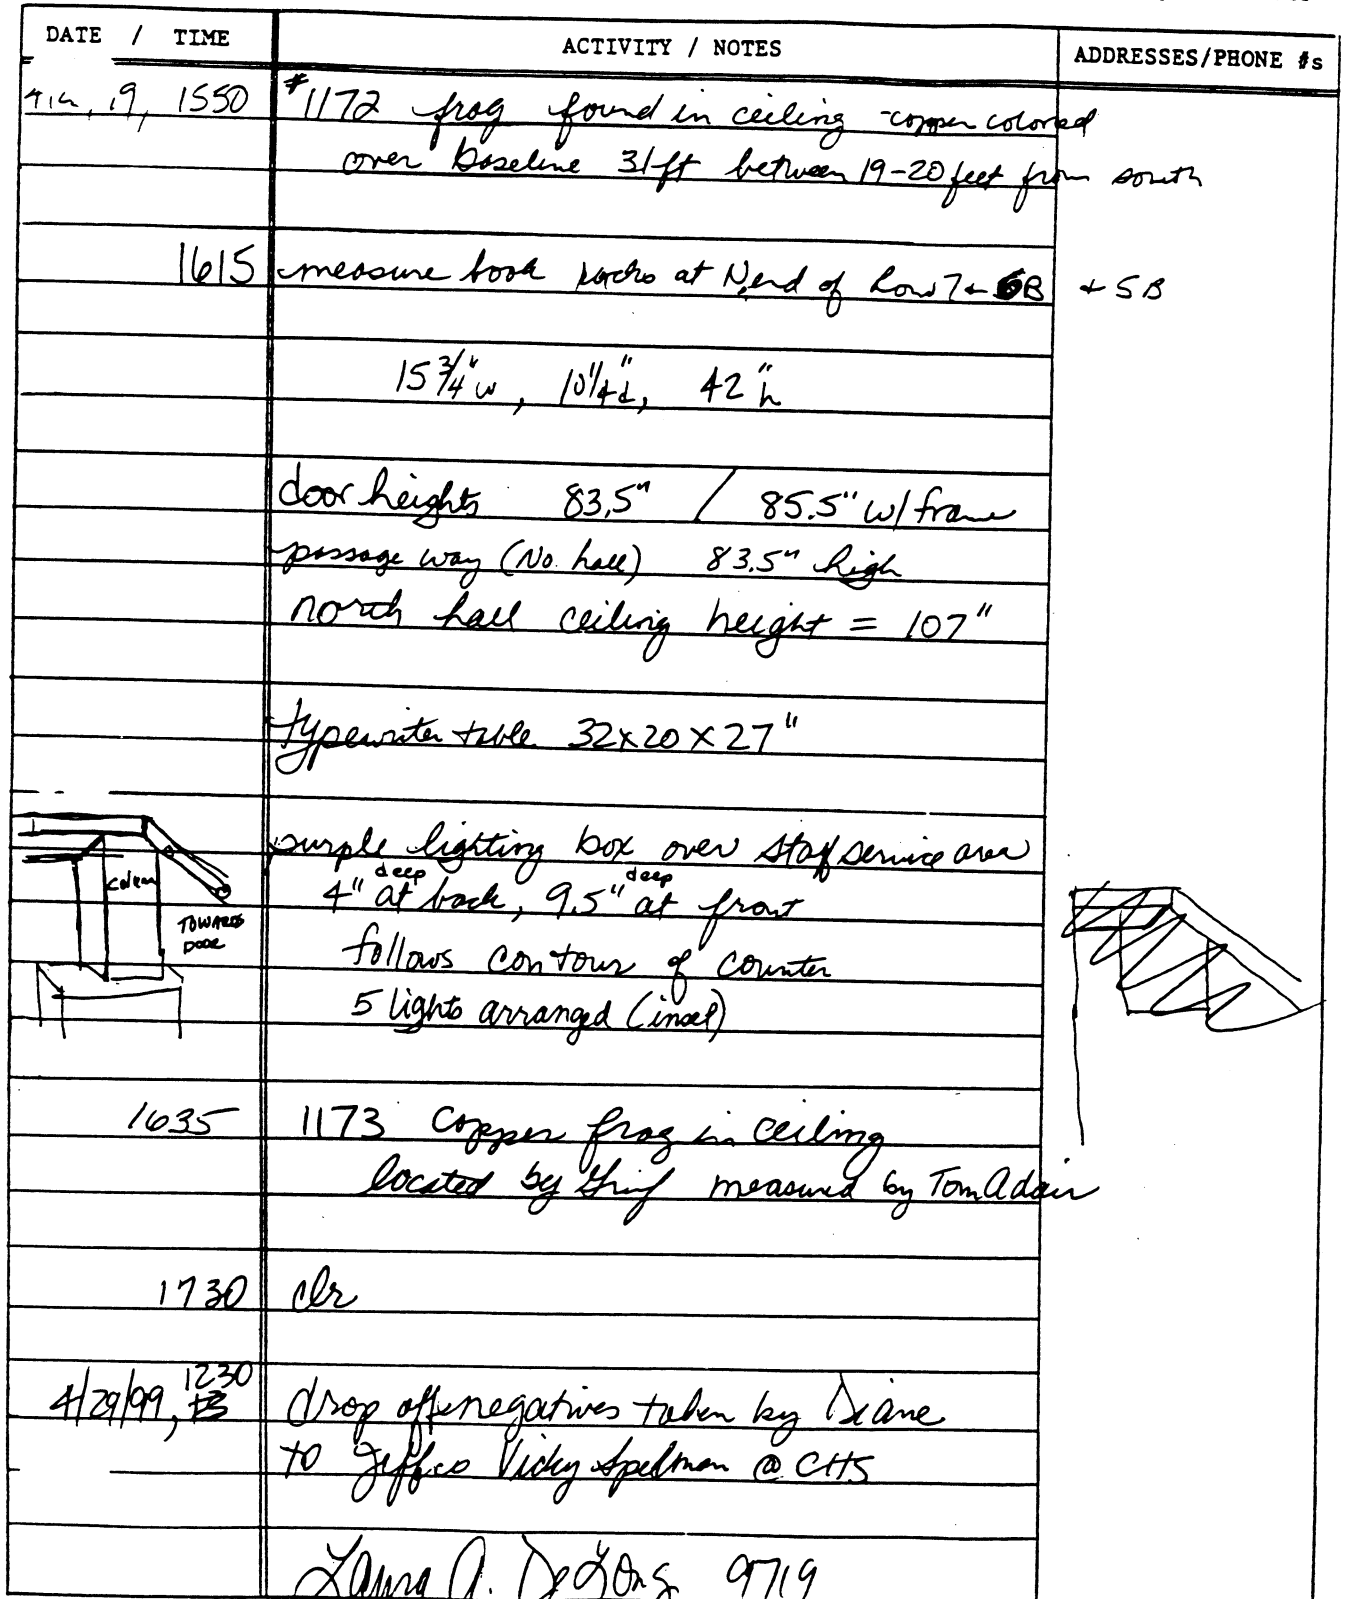 DATE / TIME ACTIVITY / NOTES ADDRESSES/PHONE #s
19, 1550 #1172 frog found in ceiling - copper colored
over baseline 31ft between 19-20 feet from south
1615 measure book racks at N. end of Row 7 & 6B & 5B
15 3/4" w, 10 1/4" d, 42" h
door heights 83.5" / 85.5" w/ frame
passage way (No. hall) 83.5" high
north hall ceiling height = 107"
typewriter table 32x20x27"
purple lighting box over staf service area
4" deep at back, 9.5" deep at front
column
TOWARDS
DOOR
follows contour of counter
5 lights arranged (inset)
1635 1173 copper frag in ceiling
located by Grif measured by Tom Adair
1730 clr
4/29/99, 1230 drop off negatives taken by Diane
to Jeffco Vicky Spelman @ CHS
Laura A. DeLong 9719